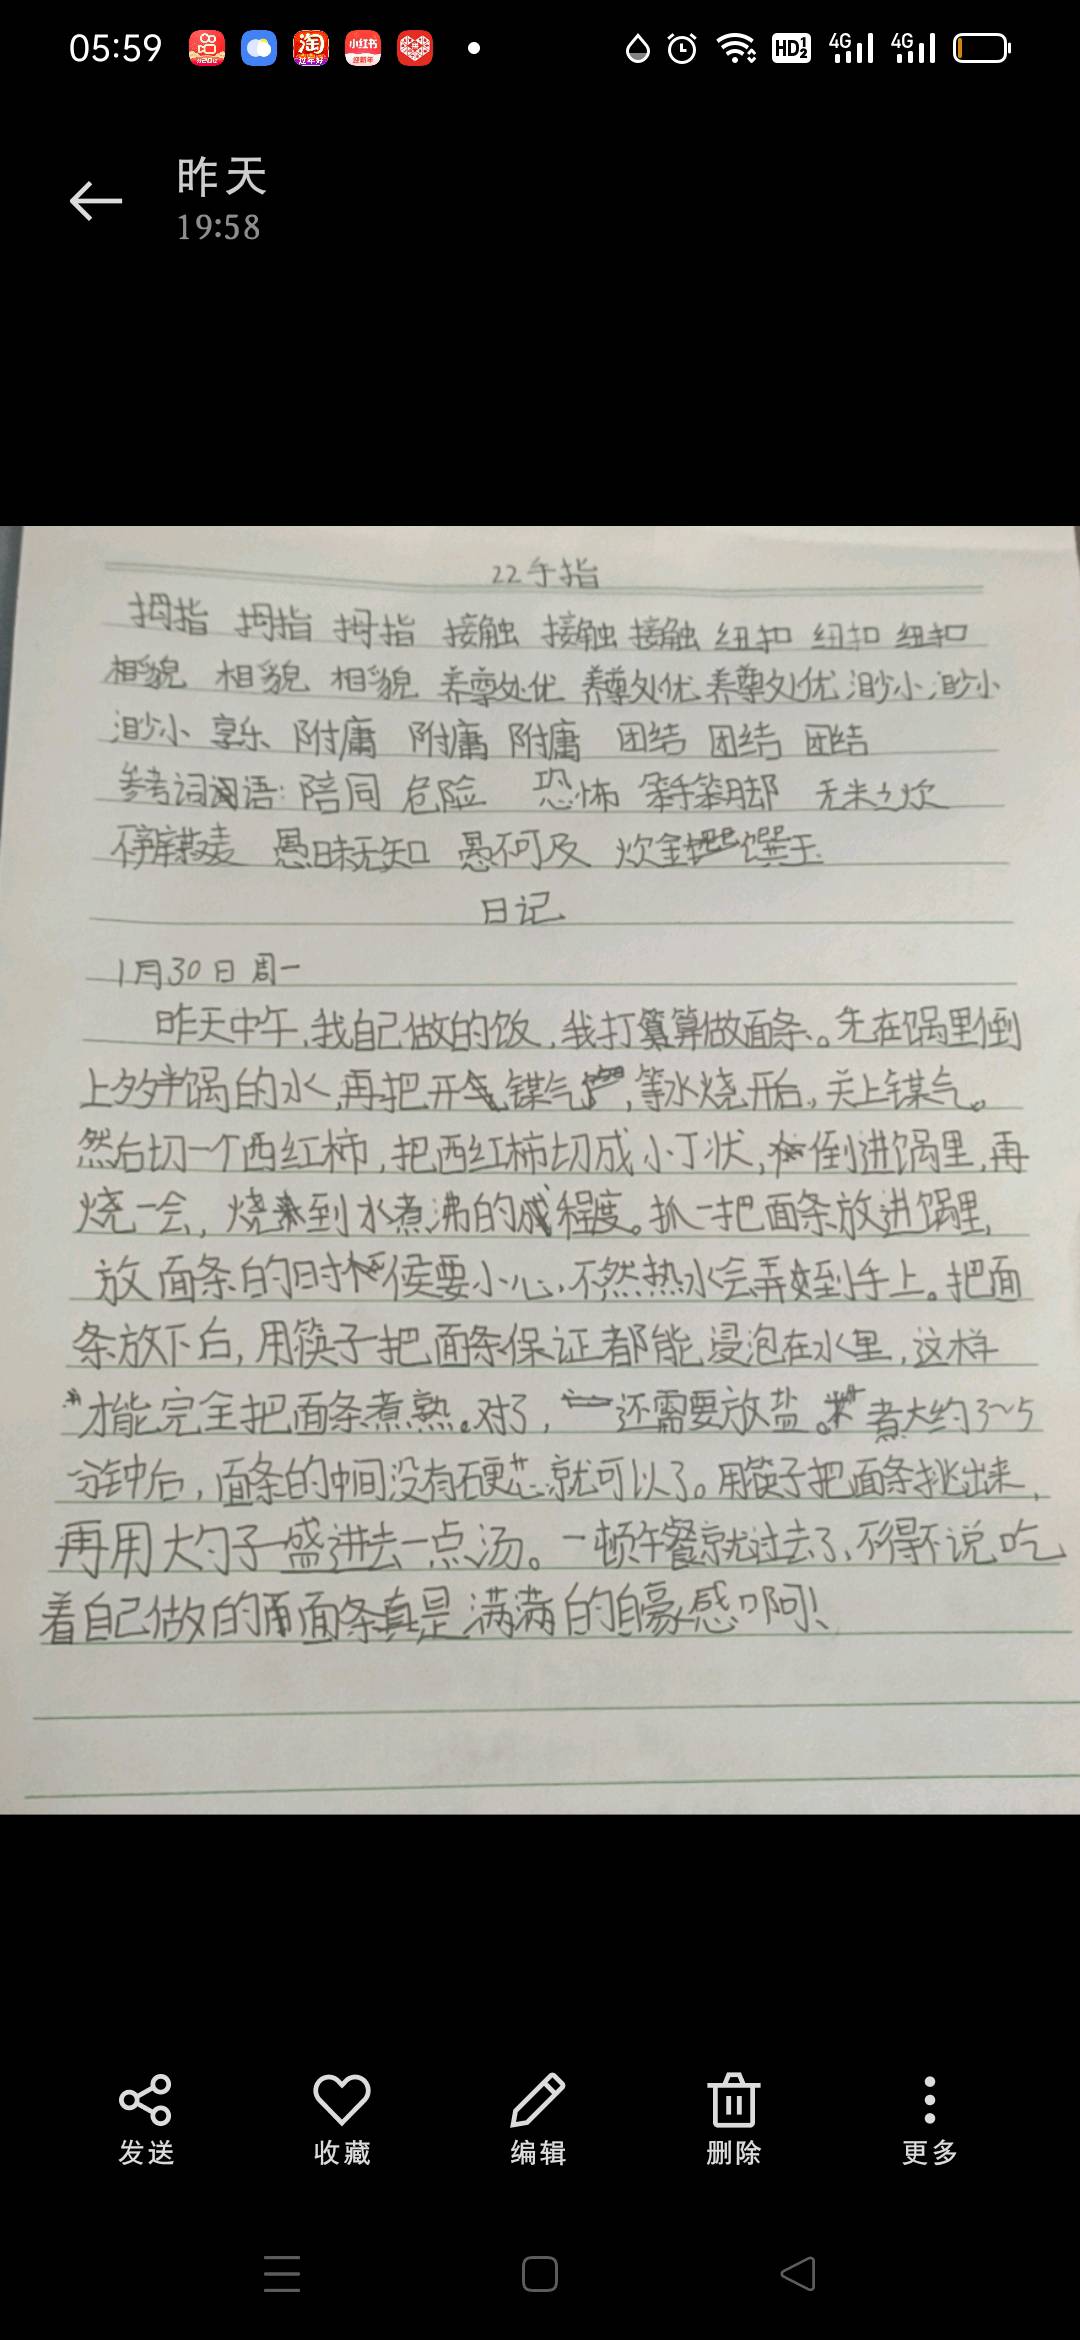 05:59
昨天
19:58
22手指
拇指 拇指 拇指 接触 接触 接触 纽扣 纽扣 纽扣
相貌 相貌 相貌 养尊处优 养尊处优 养尊处优 渺小 渺小
渺小 享乐 附庸 附庸 附庸 团结 团结 团结
参考词语:陪同 危险 恐怖 笨手笨脚 无米之炊
不辨菽麦 愚昧无知 愚不可及 炊金馔玉
日记
1月30日 周一
昨天中午,我自己做的饭,我打算做面条。先在锅里倒
上多半锅的水,再把开煤气,等水烧开后,关上煤气。
然后切一个西红柿,把西红柿切成小丁状,倒进锅里,再
烧一会,烧到水煮沸的程度。抓一把面条放进锅里,
放面条的时候要小心,不然热水会弄到手上。把面
条放下后,用筷子把面条保证都能浸泡在水里,这样
才能完全把面条煮熟。对了,还需要放盐。煮大约3~5
分钟后,面条的中间没有硬芯就可以了。用筷子把面条挑出来,
再用大勺子盛进去一点汤。一顿午餐就过去了,不得不说吃
着自己做的面条真是满满的自豪感啊!
发送 收藏 编辑 删除 更多